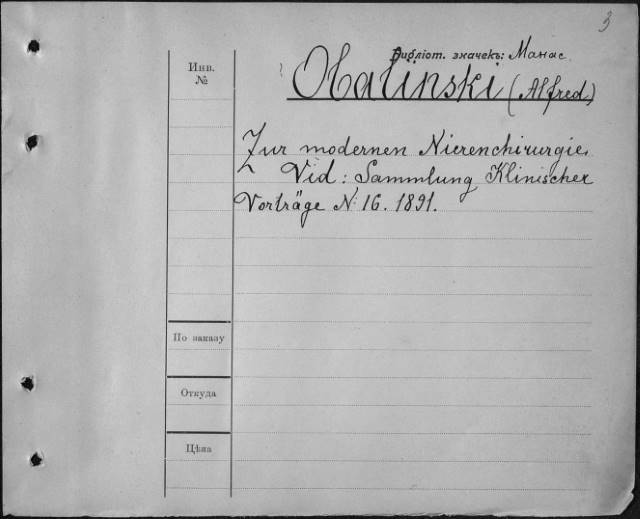 3
Библіот. значекъ: Манас.
Инв.
№
Obalinski (Alfred)
Zur modernen Nierenchirurgie.
Vid: Sammlung Klinischer
Vorträge N: 16. 1891.
По заказу
Откуда
Цѣна